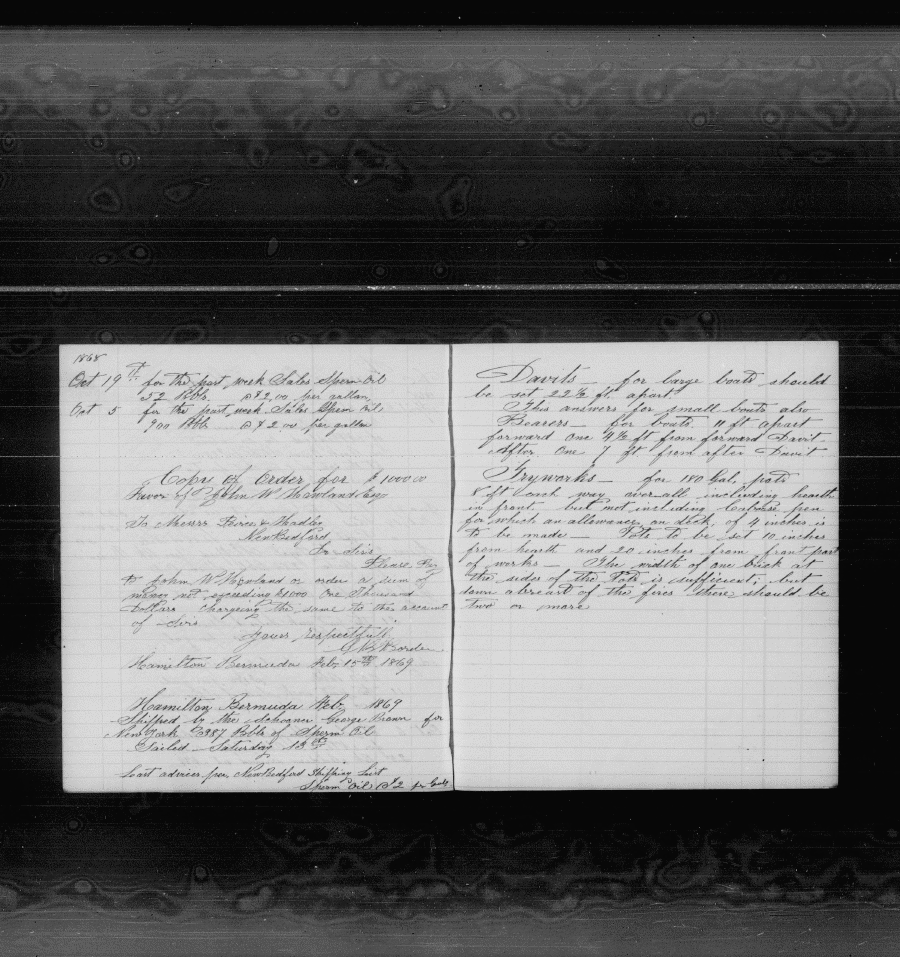 1868
Oct 19th for the past week Sales Sperm Oil
52 Bbls. @ $2,00 per gallon,
Oct 5 for the past week Sales Sperm Oil,
900 Bbls @ $2.00 per gallon
Copy of Order for $1000.00
Favor of John W Howland Esq
To Messrs
New Bedford
Dr Sirs
Please Pay
to John W Howland or order a sum of
money not exceeding $1000 One Thousand
Dollars charging the same to the account
of
Yours respectfully
Hamilton Bermuda Feb 15th 1869
Hamilton Bermuda Feb, 1869
Shipped by the schooner George Brown for
New York 387 Bbls of Sperm Oil
Sailed Saturday 13th
Last advices per New Bedford Shipping List
Sperm Oil @ $2 pr Gall
Davits — for large boats should
be set 22½ ft. apart.
This answers for small boats also
Bearers — for boats. 11 ft apart
forward One 4½ ft from forward Davit
After One 7 ft from after Davit
Tryworks — for 180 Gal. pots
8 ft each way over all including hearth
in front but not including Caboose pen
for which an allowance, on deck, of 4 inches is
to be made — Pots to be set 10 inches
from hearth and 20 inches from front part
of works — The width of one brick at
the sides of the Pots is sufficient; but
down abreast of the fires there should be
two or more